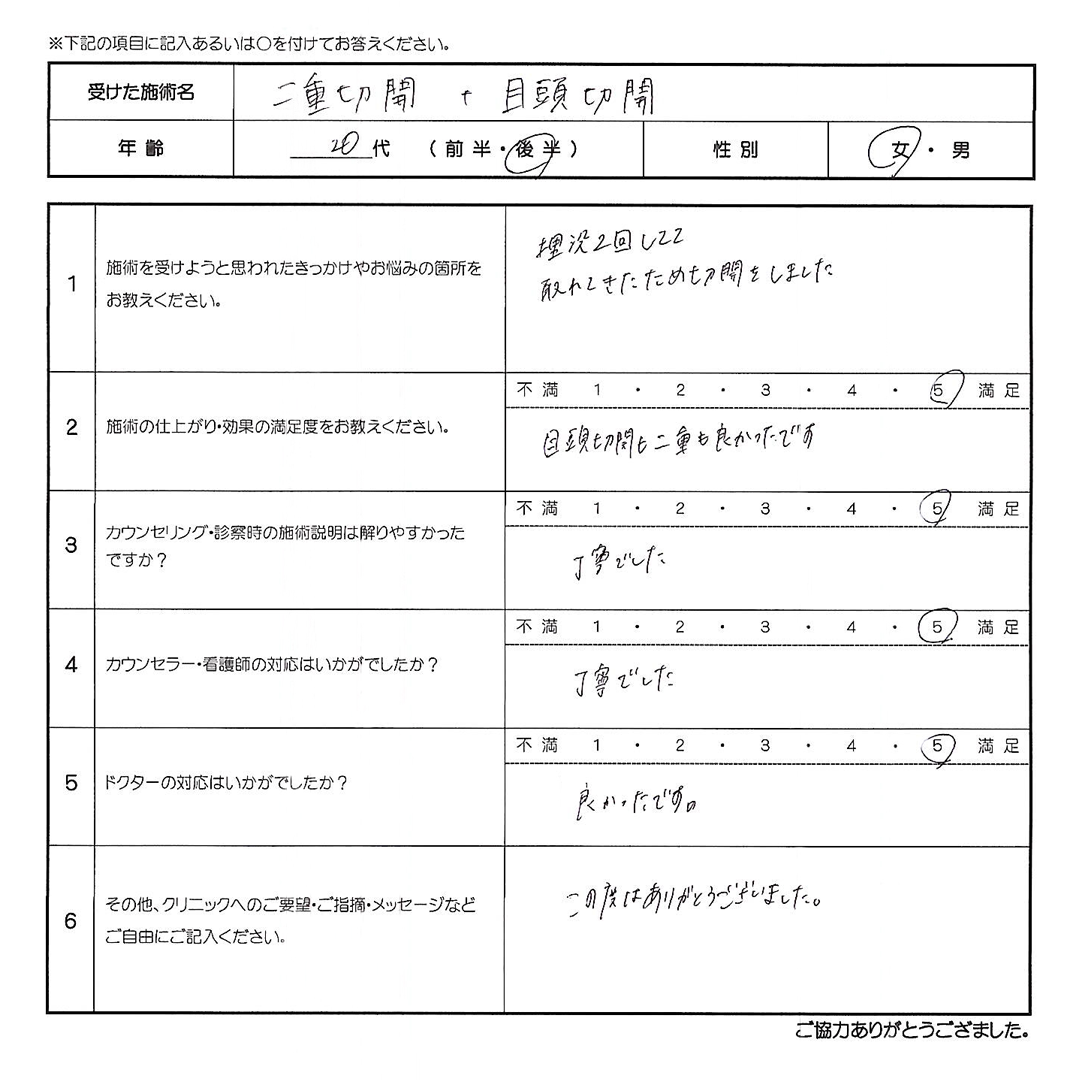 ※下記の項目に記入あるいは○を付けてお答えください。
受けた施術名 二重切開 + 目頭切開
年齢 20代 (前半・後半) 性別 女・男
1 施術を受けようと思われたきっかけやお悩みの箇所を
お教えください。
埋没2回してて
取れてきたため切開をしました
2 施術の仕上がり・効果の満足度をお教えください。
不満 1 ・ 2 ・ 3 ・ 4 ・ 5 満足
目頭切開も二重も良かったです
3 カウンセリング・診察時の施術説明は解りやすかった
ですか?
不満 1 ・ 2 ・ 3 ・ 4 ・ 5 満足
丁寧でした
4 カウンセラー・看護師の対応はいかがでしたか?
不満 1 ・ 2 ・ 3 ・ 4 ・ 5 満足
丁寧でした
5 ドクターの対応はいかがでしたか?
不満 1 ・ 2 ・ 3 ・ 4 ・ 5 満足
良かったです。
6 その他、クリニックへのご要望・ご指摘・メッセージなど
ご自由にご記入ください。
この度はありがとうございました。
ご協力ありがとうござました。